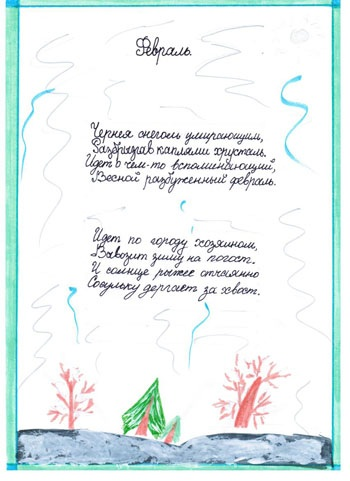 Февраль.
Чернея снегом умирающим,
Разбрызгав каплями хрусталь.
Идет о чем-то вспоминающий,
Весной разбуженный февраль.
Идет по городу хозяином,
Вывозит зиму на погост.
И солнце рыжее отчаянно
Сосульку дергает за хвост.